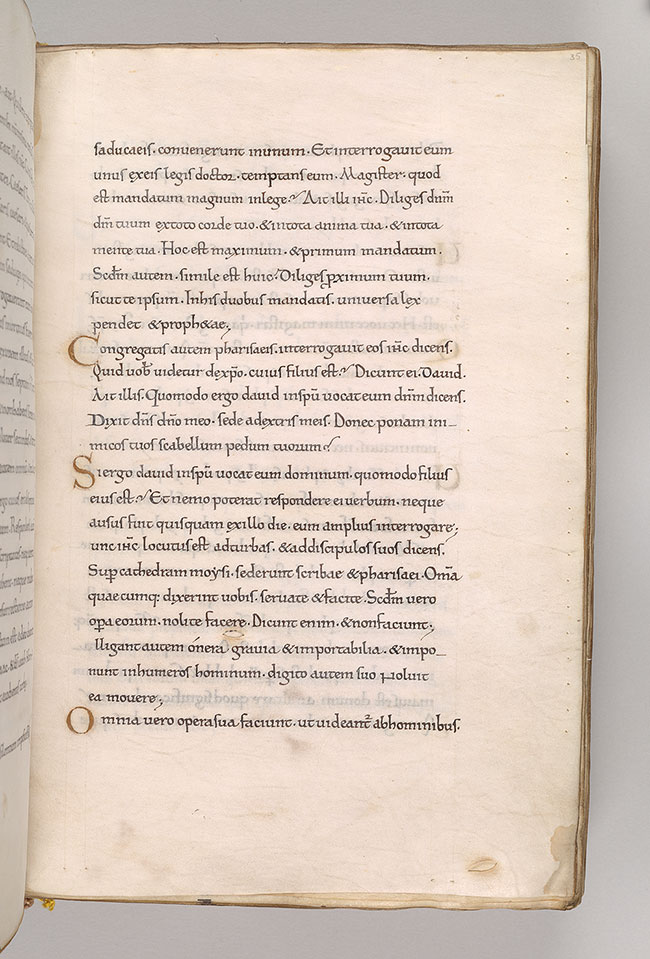 35
saducaeis. convenerunt inunum. Et interrogavit eum
unus exeis legis doctor. temptans eum. Magister. quod
est mandatum magnum inlege? Ait illi ihc. Diliges dnm
dm tuum extoto corde tuo. & intota anima tua. & intota
mente tua. Hoc est maximum. & primum mandatum.
Scdm autem. simile est huic. Diliges pximum tuum.
sicut te ipsum. Inhis duobus mandatis. universa lex
pendet & proph&ae;
Congregatis autem pharisaeis. interrogavit eos ihc dicens.
Quid vob videtur dexpo. cuius filius est? Dicunt ei. David.
Ait illis. Quomodo ergo david inspu vocat eum dnm dicens.
Dixit dns dno meo. sede adextris meis. Donec ponam ini–
micos tuos scabellum pedum tuorum?
Si ergo david inspu vocat eum dominum. quomodo filius
eius est? Et nemo poterat respondere ei verbum. neque
ausus fuit quisquam exillo die. eum amplius interrogare;
unc ihc locutus est adturbas. & addiscipulos suos dicens.
Sup cathedram moysi. sederunt scribae & pharisaei. Oma
quaecumq; dixerint vobis. servate & facite. Scdm vero
opa eorum. nolite facere. Dicunt enim. & nonfaciunt;
lligant autem onera gravia & importabilia. & impo–
nunt inhumeros hominum. digito autem suo noluit
ea movere;
Omnia vero opera sua faciunt. ut videant abhominibus.